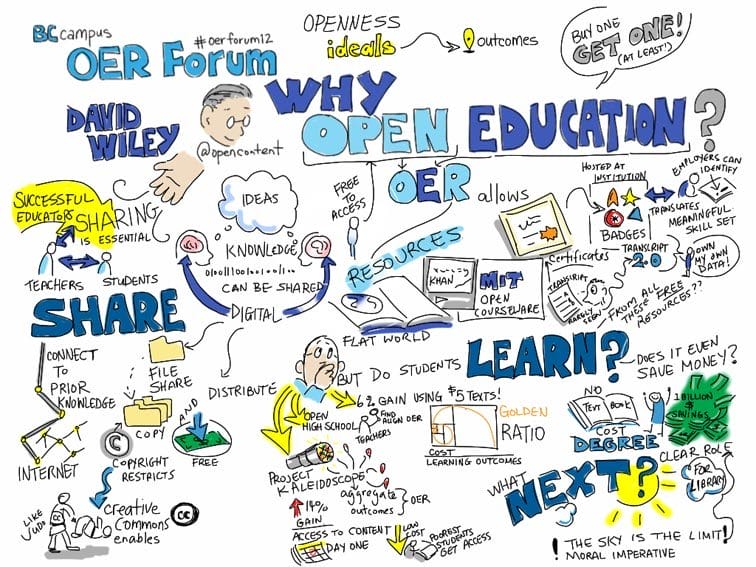 BCcampus
OER Forum
#oerforum12
OPENNESS
ideals
outcomes
BUY ONE
GET ONE!
(AT LEAST!)
DAVID
WILEY
@opencontent
WHY
OPEN EDUCATION?
SUCCESSFUL
EDUCATORS
SHARING
IS ESSENTIAL
TEACHERS
STUDENTS
IDEAS
KNOWLEDGE
CAN BE SHARED
DIGITAL
FREE
TO
ACCESS
OER
allows
RESOURCES
FLAT WORLD
KHAN
MIT
OPEN
COURSEWARE
Certificates
HOSTED AT
INSTITUTION
BADGES
TRANSLATES
EMPLOYERS CAN
IDENTIFY
MEANINGFUL
SKILL SET
TRANSCRIPT
2.0
OWN
MY OWN
DATA!
TRANSCRIPT
RARELY
SEEN
FROM ALL
THESE FREE
RESOURCES??
SHARE
CONNECT
TO
PRIOR
KNOWLEDGE
INTERNET
FILE
SHARE
COPY
AND
DISTRIBUTE
FREE
©
COPYRIGHT
RESTRICTS
LIKE
JUDO
Creative
Commons
enables
cc
BUT DO STUDENTS
LEARN?
DOES IT EVEN
SAVE MONEY?
6% GAIN USING $5 TEXTS!
OPEN
HIGH SCHOOL
FIND
ALIGN OER
TEACHERS
GOLDEN
RATIO
COST
LEARNING OUTCOMES
PROJECT
KALEIDOSCOPE
aggregate
outcomes
OER
14%
GAIN
ACCESS TO CONTENT
DAY ONE
LOW
COST
POOREST
STUDENTS
GET ACCESS
NO
TEXT BOOK
COST
DEGREE
1 BILLION
$
SAVINGS
WHAT
NEXT?
CLEAR ROLE
FOR
LIBRARY
! THE SKY IS THE LIMIT!
MORAL IMPERATIVE